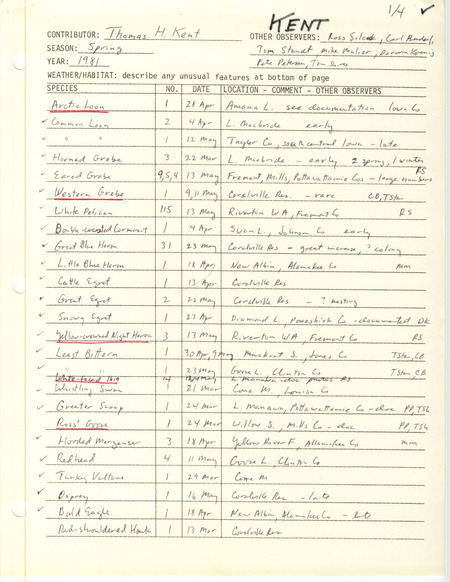 1/4 ✓
KENT
CONTRIBUTOR: Thomas H. Kent
OTHER OBSERVERS: Ross Silcock, Carl Bendorf,
SEASON: Spring
Tom Staudt
YEAR: 1981
Pete Petersen, Tom Shires
WEATHER/HABITAT: describe any unusual features at bottom of page
SPECIES NO. DATE LOCATION - COMMENT - OTHER OBSERVERS
Arctic Loon 1 28 Apr Amana L. see documentation Iowa Co
✓ Common Loon 2 4 Apr L. Macbride early
✓ " " 1 12 May Taylor Co, south central Iowa - late
✓ Horned Grebe 3 22 Mar L. Macbride - early 2 spring, 1 winter
✓ Eared Grebe 9,5,4 13 May Fremont, Mills, Pottawattamie Cos - large numbers RS
✓ Western Grebe 1 9,11 May Coralville Res. - rare CB, TSta
✓ White Pelican 115 13 May Riverton WA, Fremont Co RS
✓ Double-crested Cormorant 1 4 Apr Swan L., Johnson Co early
✓ Great Blue Heron 31 23 May Coralville Res - great increase, ? colony
✓ Little Blue Heron 1 18 Apr New Albin, Allamakee Co mm
✓ Cattle Egret 1 13 Apr Coralville Res
✓ Great Egret 2 22 May Coralville Res - ? nesting
✓ Snowy Egret 1 27 Apr Diamond L. Poweshiek Co - documented DK
Yellow-crowned Night Heron 3 13 May Riverton WA, Fremont Co RS
✓ Least Bittern 1 30 Apr, 9 May S., Jones Co TSta, CB
✓ " " 1 23 May Goose L., Clinton Co TSta CB
White-faced Ibis
✓ Whistling Swan 1 21 Mar Cone M., Louisa Co
✓ Greater Scaup 1 24 Mar L. Manawa, Pottawattamie Co - doc PP, TSh
✓ Ross' Goose 1 24 Mar Willow S., Mills Co - doc PP, TSh
✓ Hooded Merganser 3 18 Apr Yellow River F, Allamakee Co mm
✓ Redhead 4 11 May Goose L., Clinton Co
✓ Turkey Vulture 1 29 Mar Cone M
✓ Osprey 1 16 May Coralville Res - late
✓ Bald Eagle 1 18 Apr New Albin, Allamakee Co - late
Red-shouldered Hawk 1 13 Mar Coralville Res